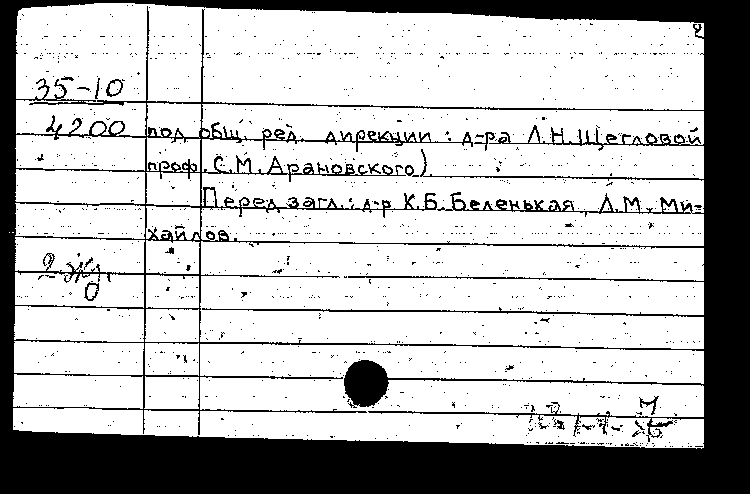 2
35-10
4200 под общ. ред. дирекции: д-ра Л.Н.Щегловой
проф. С.М.Арановского)
Перед загл.: д-р К.Б.Беленькая, Л.М. Ми-
хайлов.
2 экз.
М